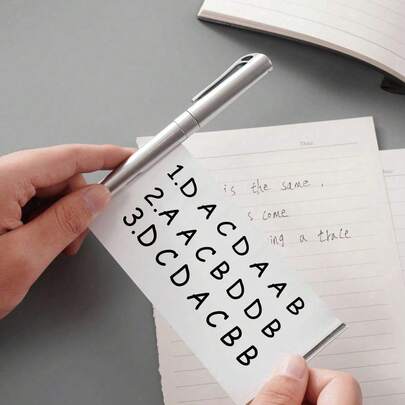 1.D A C D A A B
2.A A C B D D B
3.D C D A C B B
is the same ,
s come
ing a trace